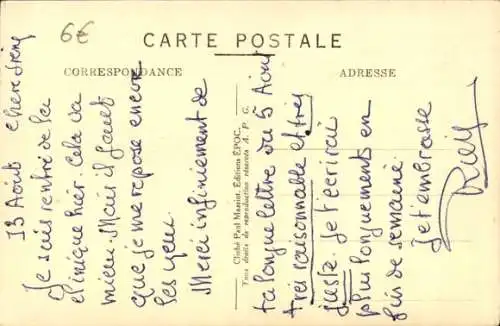 6€
CARTE POSTALE
CORRESPONDANCE
ADRESSE
Cliché Paul Massiot, Editions EPOC.
Tous droits de reproduction réservés A. P. G.
13 Août Chère
Je suis rentré de la
clinique hier. Cela va
mieux. Mais il faut
que je me repose encore
les yeux.
Merci infiniement de
ta longue lettre du 5 Août
très raisonnable et très
juste. Je t'écrirai
plus longuements en
fin de semaine.
Je t'embrasse